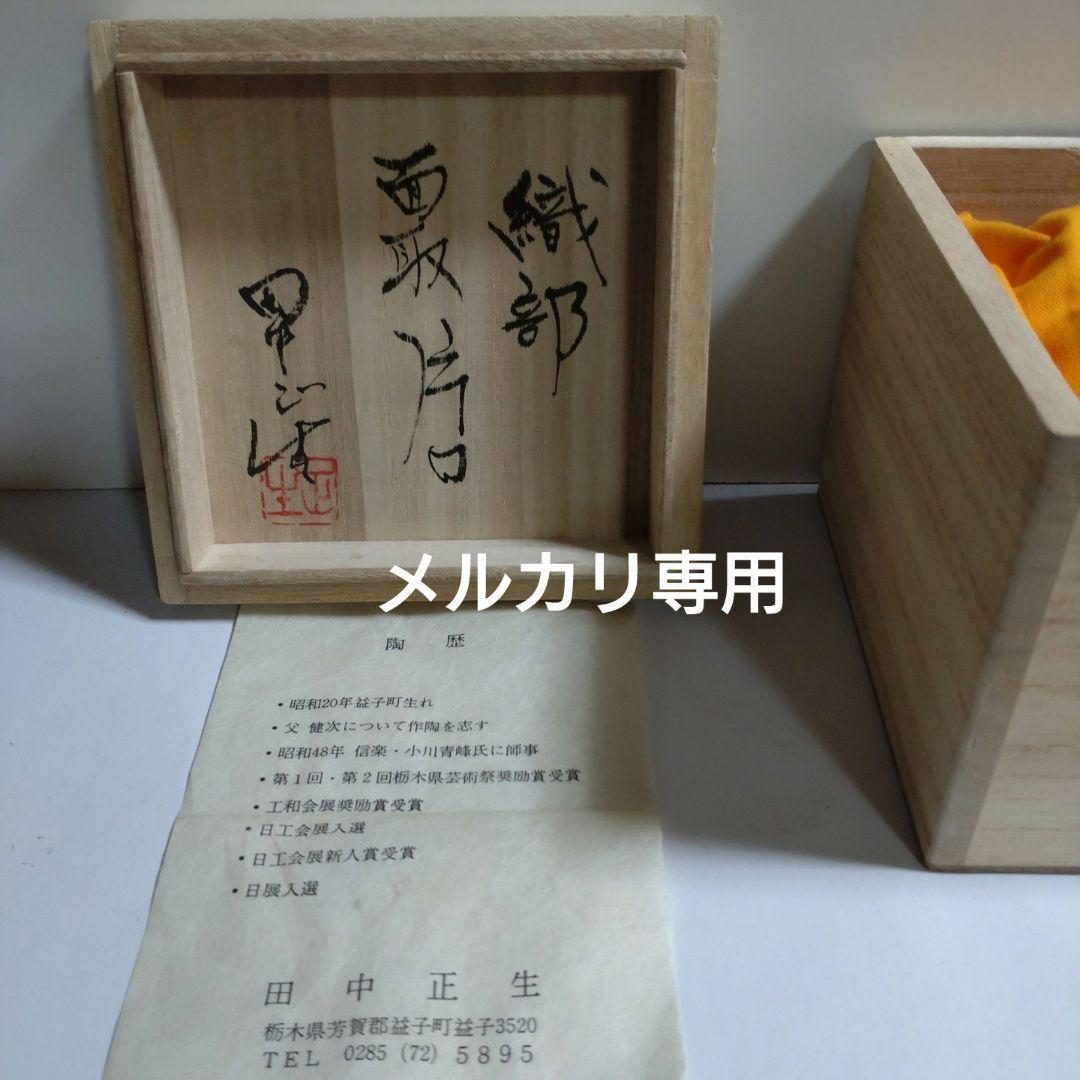 織部
面取片口
田中正生
正生
メルカリ専用
陶歴
・昭和20年益子町生れ
・父 健次について作陶を志す
・昭和48年 信楽・小川青峰氏に師事
・第1回・第2回栃木県芸術祭奨励賞受賞
・工和会展奨励賞受賞
・日工会展入選
・日工会展新人賞受賞
・日展入選
田中正生
栃木県芳賀郡益子町益子3520
TEL 0285(72)5895